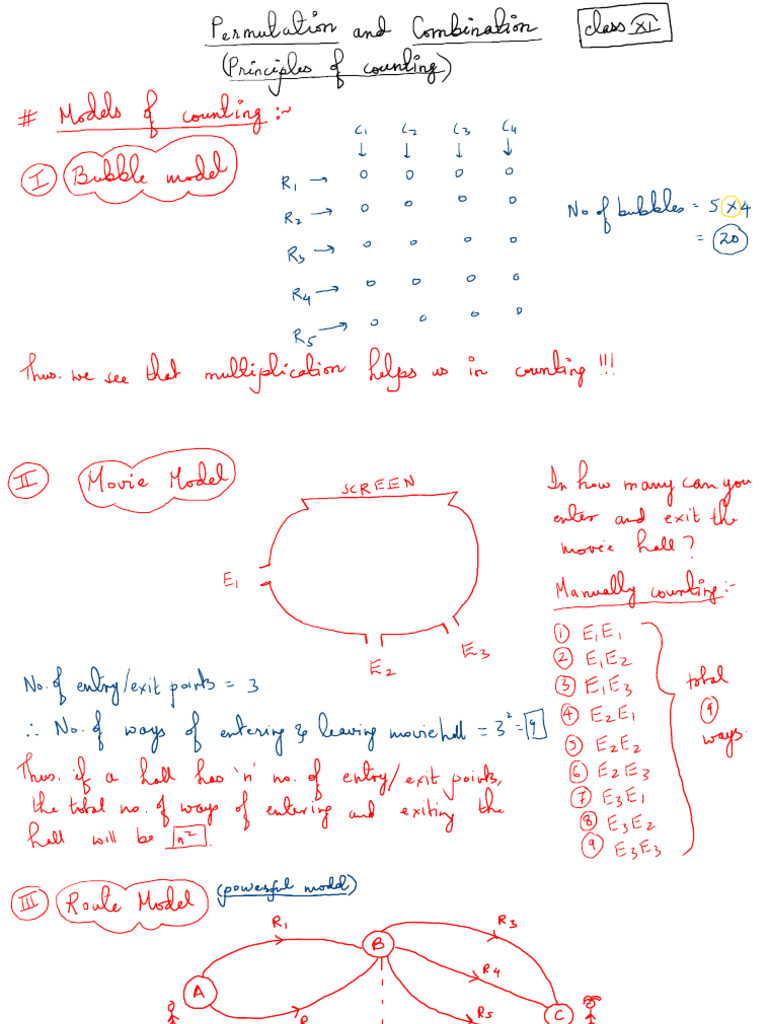 Permutation and Combination
class XI
(Principles of counting)
# Models of counting :-
I Bubble model
C1 C2 C3 C4
R1 →
R2 →
R3 →
R4 →
R5 →
No of bubbles = 5 × 4
= 20
Thus. we see that multiplication helps us in counting !!!
II Movie Model
SCREEN
E1
E2
E3
In how many can you
enter and exit the
movie hall?
Manually counting :-
1 E1E1
2 E1E2
3 E1E3
4 E2E1
5 E2E2
6 E2E3
7 E3E1
8 E3E2
9 E3E3
total
9
ways.
No. of entry/exit points = 3
∴ No. of ways of entering & leaving movie hall = 3² = 9
Thus. if a hall has 'n' no. of entry/exit points,
the total no. of ways of entering and exiting the
hall will be n².
III Route Model (powerful model)
R1
R3
B
R4
A
R5
C
R